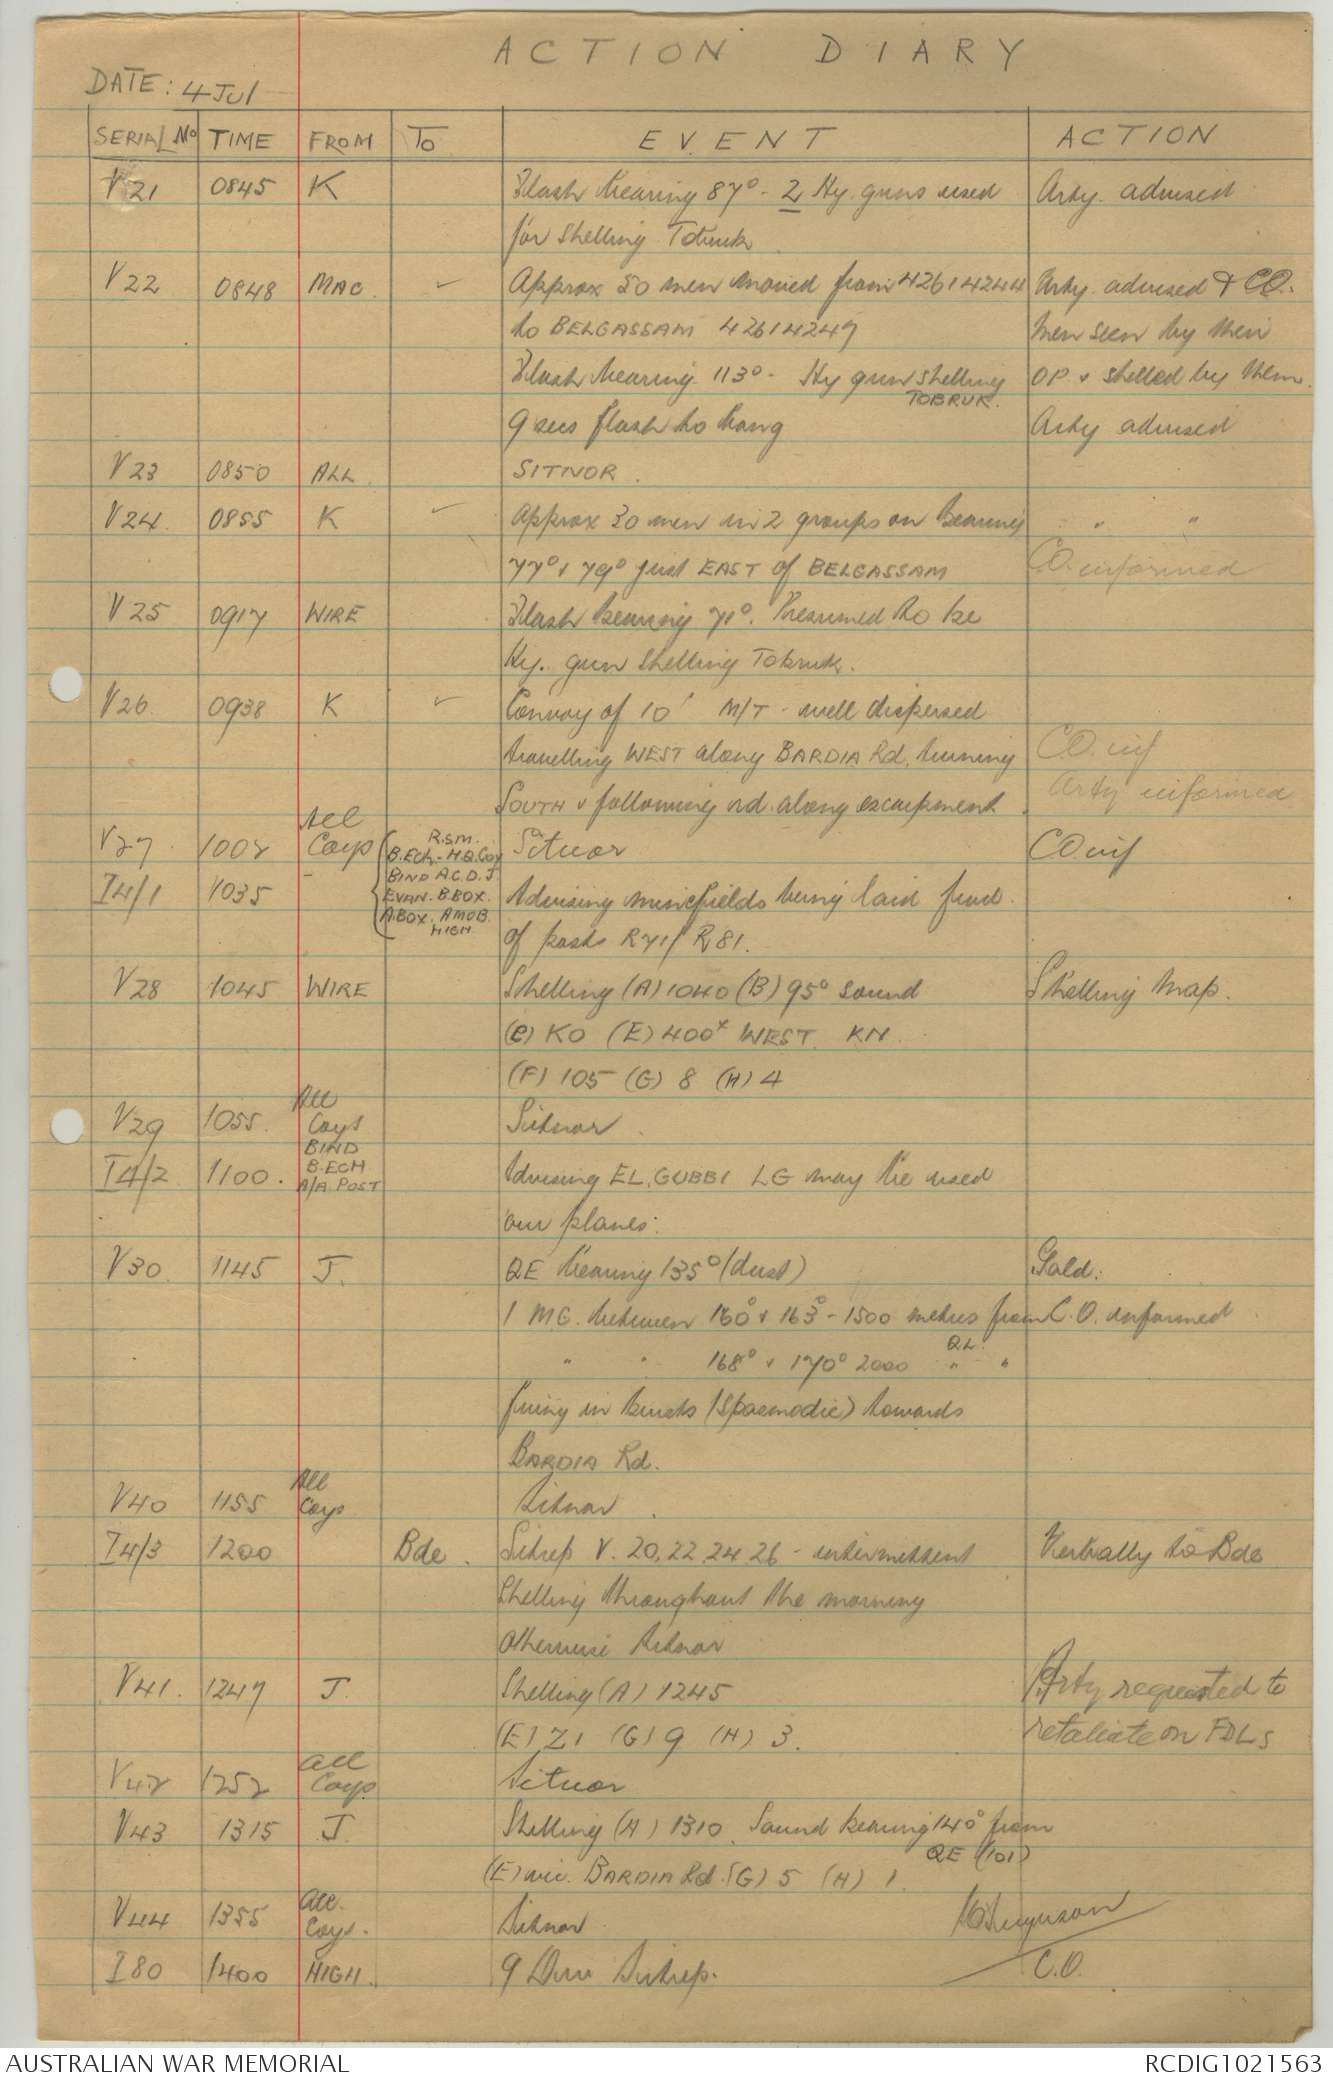 ACTION DIARY
DATE: 4 Jul
SERIAL No TIME FROM To EVENT ACTION
V21 0845 K Flash bearing 87° - 2 Hy. guns used Arty. advised
for shelling Tobruk
V22 0848 MAC. ✓ Approx 50 men moved from 42614244 Arty. advised & CO.
to BELGASSAM 42614247 Men seen by their
Flash bearing 113° - Hy gun shelling OP & shelled by them.
TOBRUK.
9 secs flash to bang Arty advised
V23 0850 ALL SITNOR.
V24 0855 K ✓ Approx 30 men in 2 groups on bearings " "
77° & 79° just EAST of BELGASSAM CO. informed
V25 0917 WIRE Flash bearing 71°. Presumed to be
Hy. gun shelling Tobruk.
V26 0938 K ✓ Convoy of 10 M/T - well dispersed
travelling WEST along BARDIA Rd, turning CO. inf
SOUTH & following rd. along escarpment Arty informed
V27 1002 All Coys Sitnor CO inf
R.S.M.
B.Ech - H.Q. Coy
BIND A.C.D.J
EVAN. B.BOX.
A.BOX. AMOB.
HIGH
I4/1 1035 Advising minefields being laid
of posts R71/R81.
V28 1045 WIRE Shelling (A) 1040 (B) 95° sound Shelling Map.
(C) KO (E) 400x WEST KN
(F) 105 (G) 8 (H) 4
V29 1055. All Coys Sitnor.
BIND
B.ECH
A/A. POST
I4/2 1100. Advising EL. GUBBI LG may be used
our planes.
V30 1145 J. QE bearing 135° (dust)
1 M.G. between 160° & 163° - 1500 metres from C.O. informed
QL.
" " 168° & 170° 2000 " "
firing in bursts (spasmodic) towards
BARDIA Rd.
V40 1155 All Coys Sitnor.
I4/3 1200 Bde. Sitrep V. 20, 22, 24, 26 - intermittent Verbally to Bde
shelling throughout the morning
otherwise Sitnor
V41. 1247 J. Shelling (A) 1245 Arty requested to
(E) Z1 (G) 9 (H) 3. retaliate on FDLs
V42 1252 All Coys Sitnor
V43 1315 J. Shelling (A) 1310. Sound bearing 140° from
QE (101)
(E) vic. BARDIA Rd. (G) 5 (H) 1.
V44 1355 All. Coys. Sitnor
I80 1400 HIGH. 9 Div Sitrep. C.O.
AUSTRALIAN WAR MEMORIAL RCDIG1021563